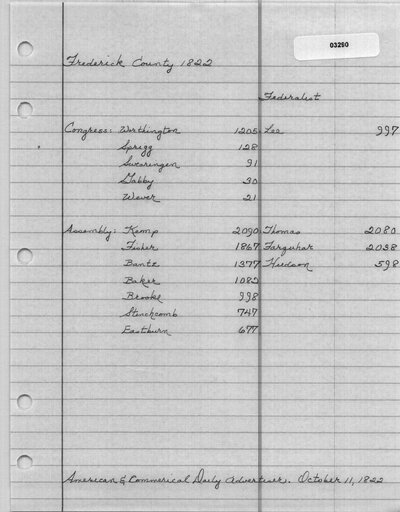 03290
Frederick County 1822
Federalist
Congress: Worthington 1205 Lee 997
Sprigg 128
Swearingen 91
Gabby 30
Weaver 21
Assembly: Kemp 2090 Thomas 2080
Fisher 1867 Farquhar 2038
Bantz 1377 Hudson 598
Baker 1082
Brooke 998
Stinchcomb 747
Eastburn 677
American & Commerical Daily Advertiser. October 11, 1822